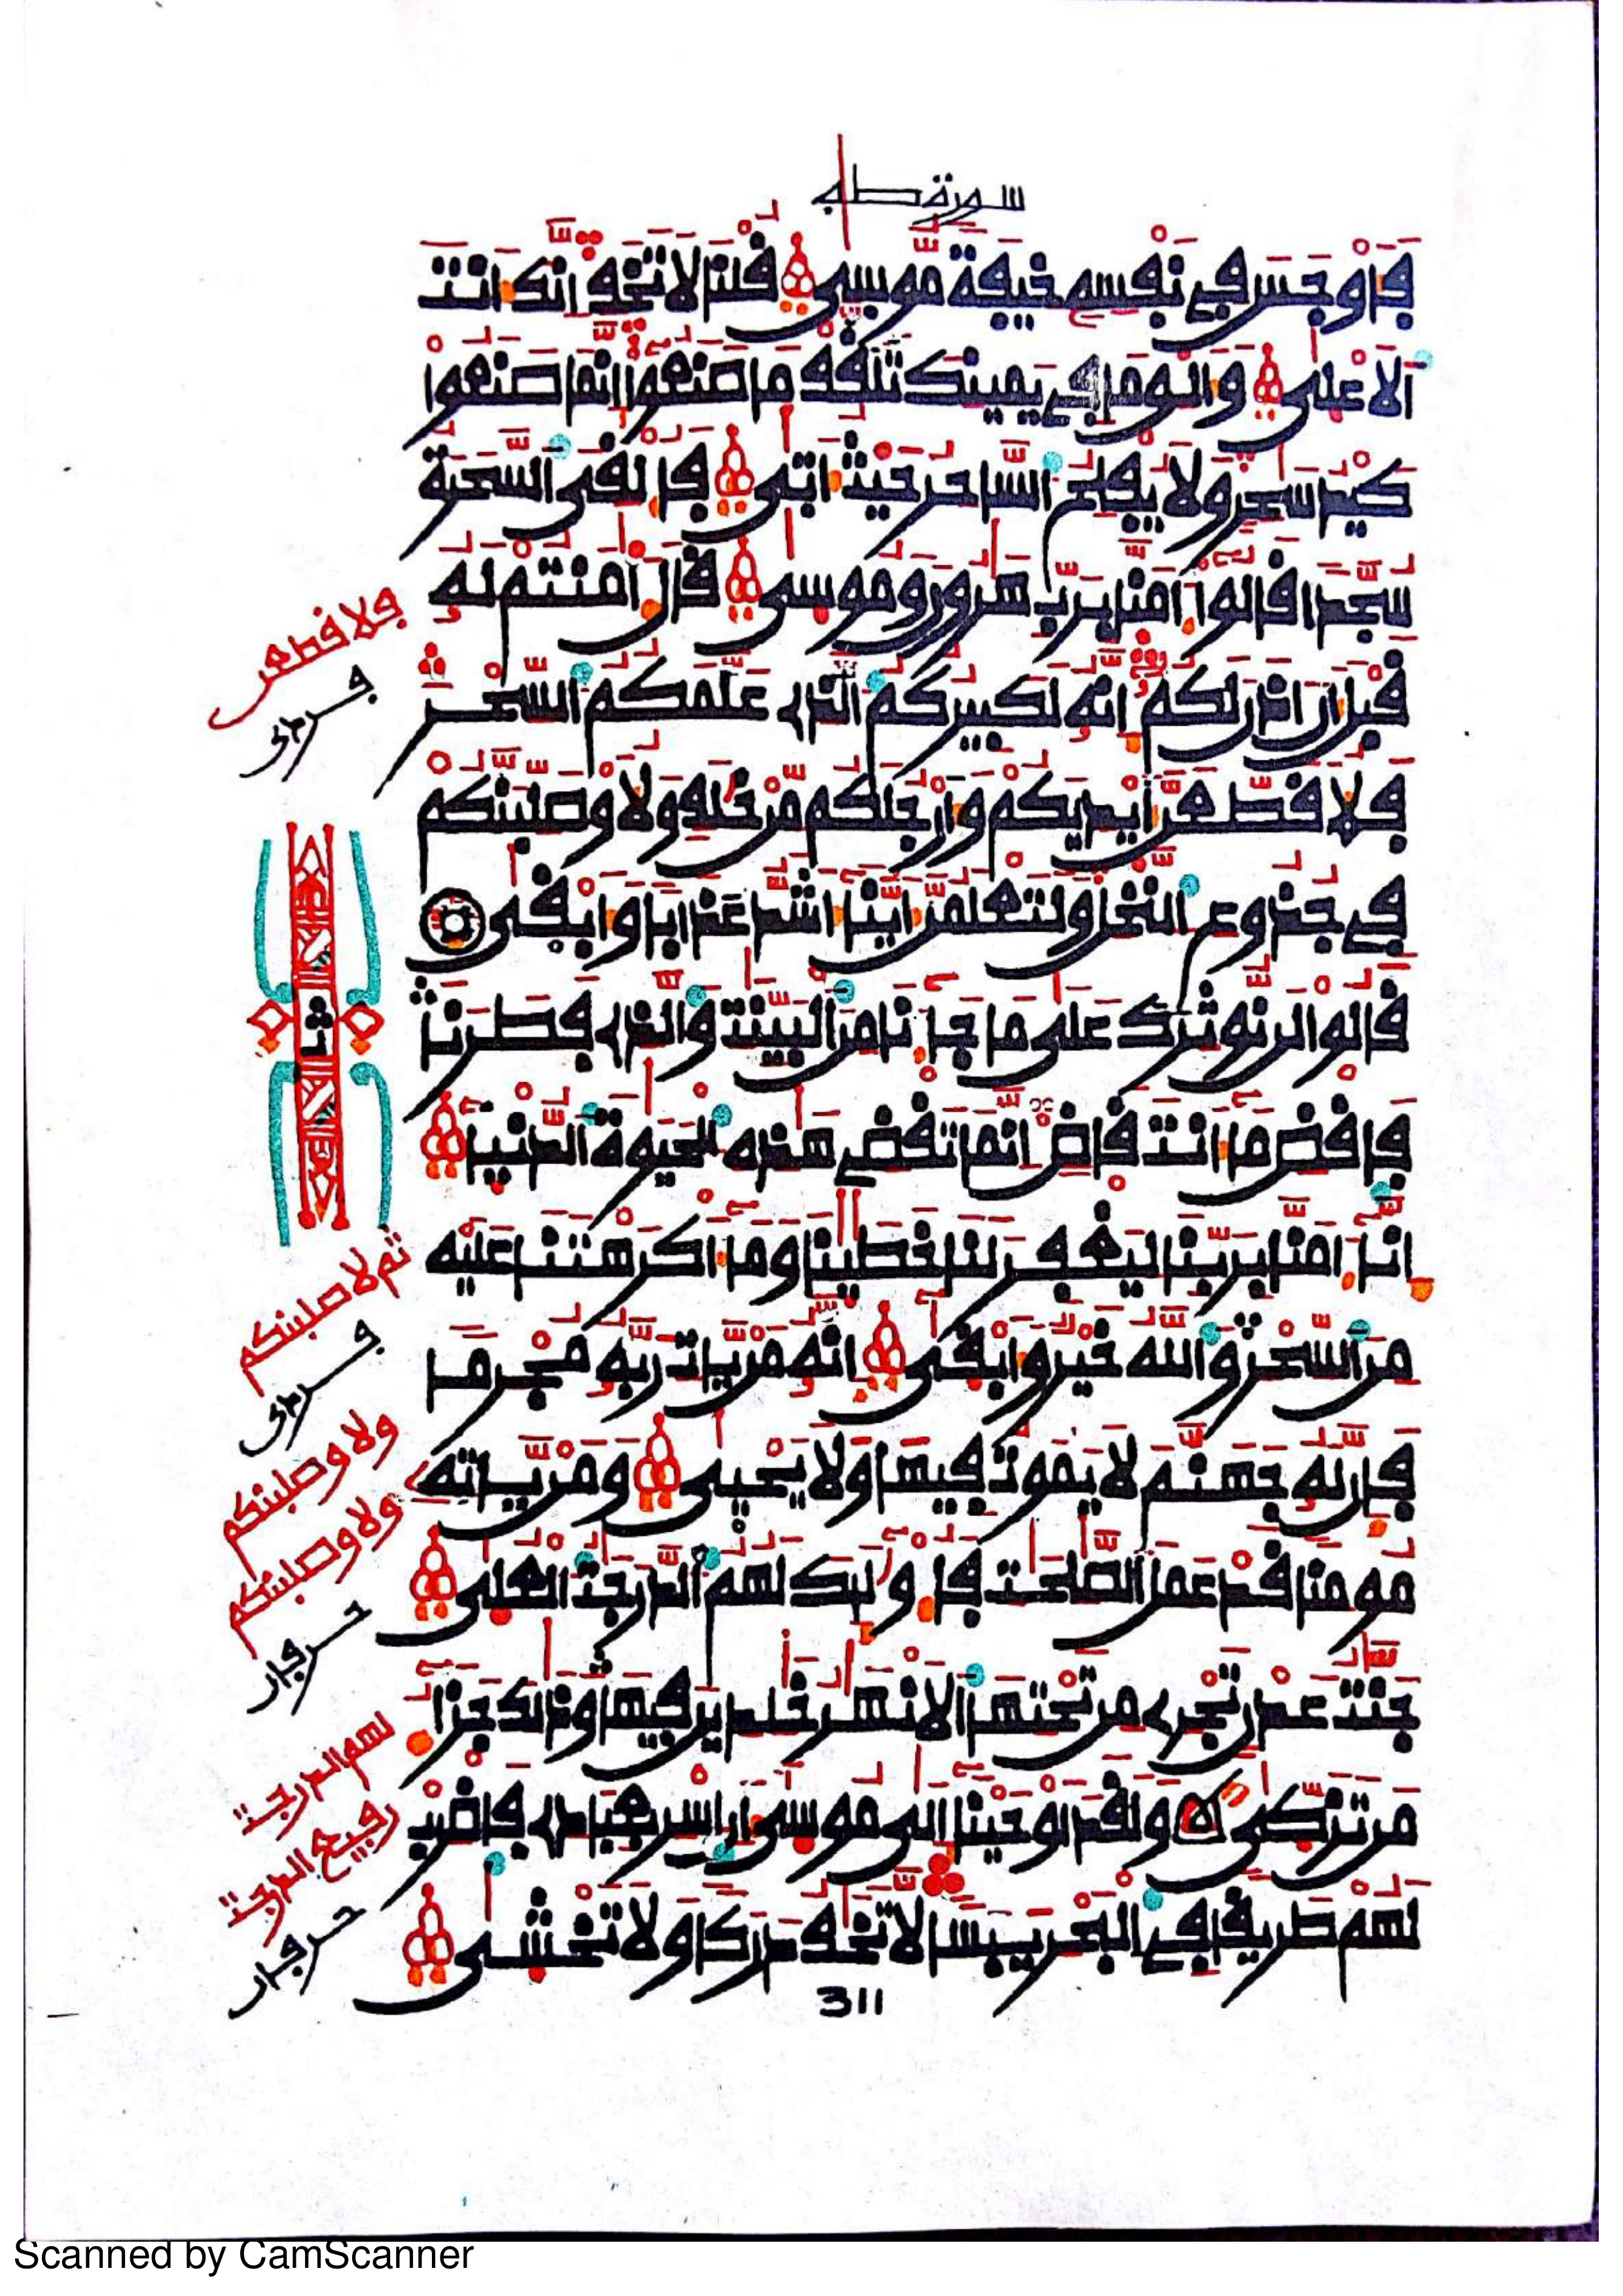 سورة طه
فأوجس في نفسه خيفة موسى قلنا لا تخف إنك أنت
الاعلى والق ما في يمينك تلقف ما صنعوا إنما صنعوا
كيد سحر ولا يفلح الساحر حيث أتى فألقى السحرة
سجدا قالوا ءامنا برب هرون وموسى قال ءامنتم له
قبل أن اذن لكم إنه لكبيركم الذي علمكم السحر
فلا قطعن أيديكم وأرجلكم من خلف ولا وصلبنكم
في جذوع النخل ولتعلمن أينا أشد عذابا وأبقى
قالوا لن نوثرك على ما جاءنا من البينت والذي فطرنا
فاقض ما أنت قاض إنما تقضي هذه الحيوة الدنيا
إنا ءامنا بربنا ليغفر لنا خطينا وما أكرهتنا عليه
من السحر والله خير وأبقى إنه من يات ربه مجرما
فإن له جهنم لا يموت فيها ولا يحيى ومن ياته
مومنا قد عمل الصلحت فأولئك لهم الدرجت العلى
جنت عدن تجري من تحتها الانهر خلدين فيها وذلك جزاء
من تزكى ولقد اوحينا إلى موسى أن اسر بعبادي فاضرب
لهم طريقا في البحر يبسا لا تخف دركا ولا تخشى
311
فلا قطعن
ثم لا صلبنكم
ولا وصلبنكم
ولا وصلبنكم
لهم الدرجت
رفيع الدرجت
Scanned by CamScanner